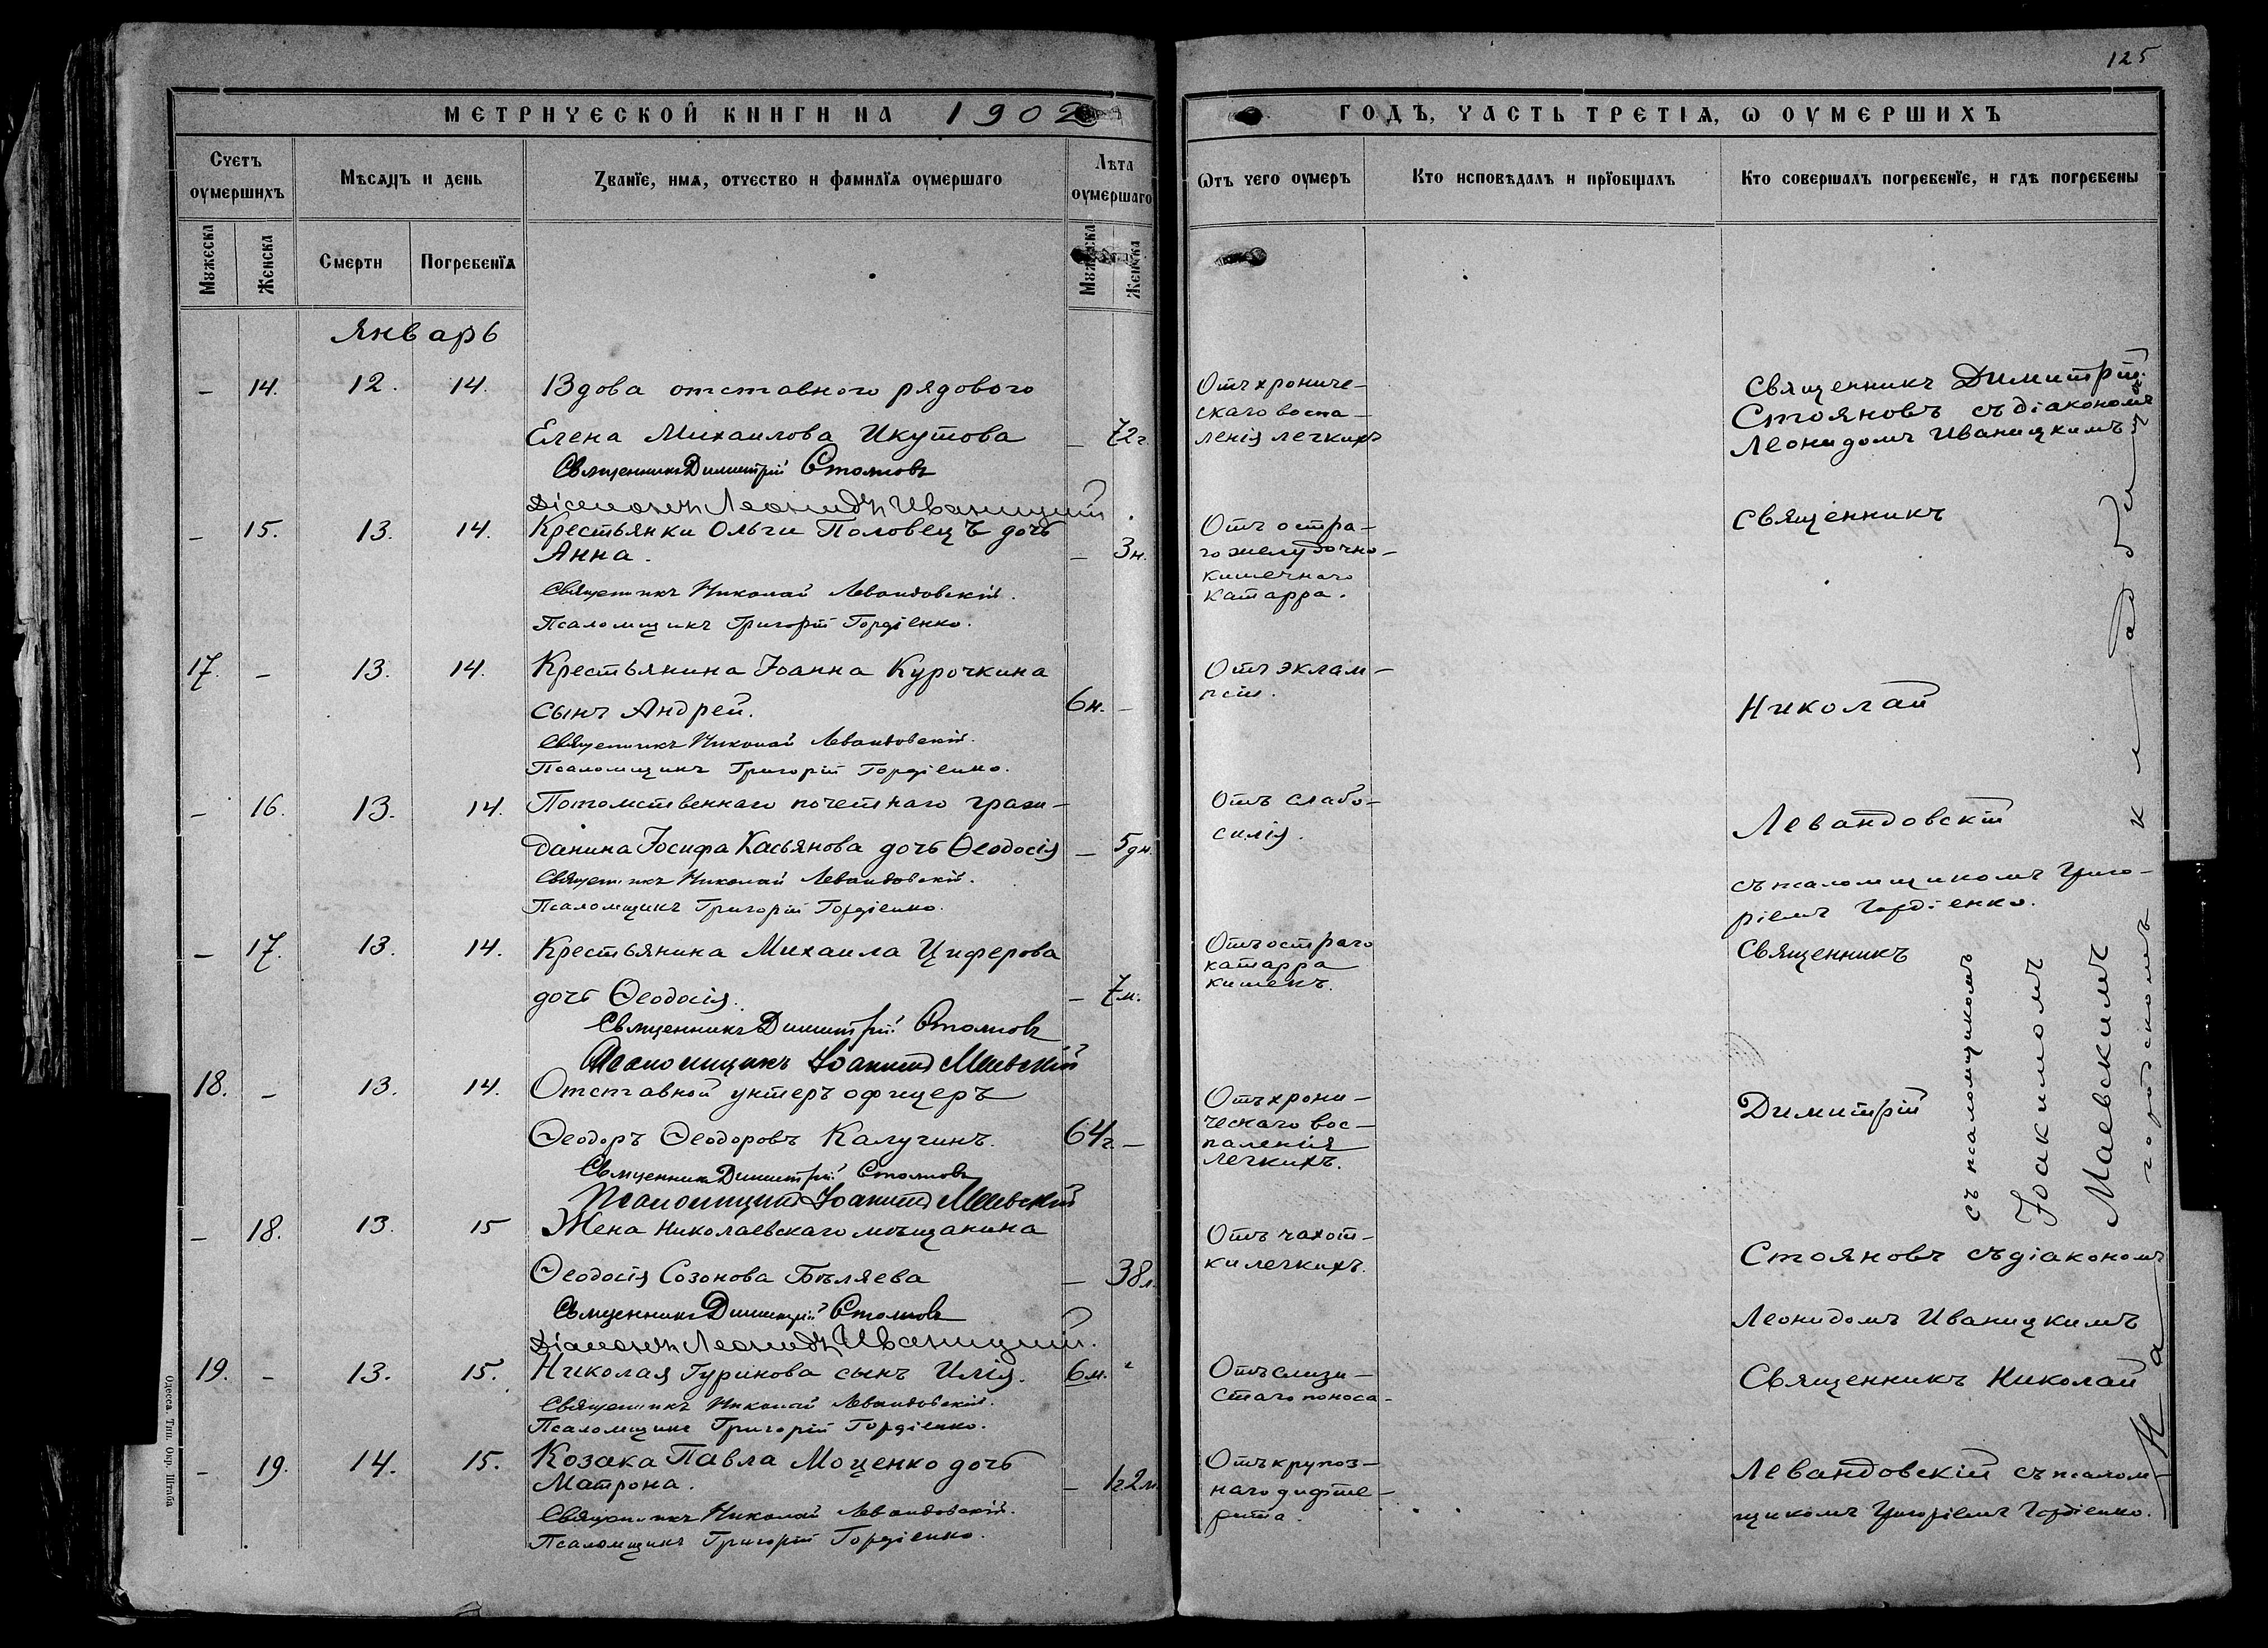 125
МЕТРИЧЕСКОЙ КНИГИ НА 1902
ГОДЪ, ЧАСТЬ ТРЕТІѦ, Ѡ ОУМЕРШИХЪ
Счетъ оумершихъ
Мѣсѧцъ и день
Званїе, имѧ, отчество и фамилїѧ оумершаго
Лѣта оумершаго
Ѿтъ чего оумеръ
Кто исповѣдалъ и прїобщалъ
Кто совершалъ погребенїе, и гдѣ погребены
Мужеска
Женска
Смерти
Погребенїѧ
Мужеска
Женска
Январь
– 14. 12. 14. Вдова отставного рядового
Елена Михаилова Икутова – 72г
Священникъ Димитрій Стояновъ
Діаконъ Леонидъ Иваницкій
Отъ хрониче-
скаго воспа-
ленія легкихъ
Священникъ Димитрій
Стояновъ съ діакономъ
Леонидомъ Иваницкимъ
– 15. 13. 14. Крестьянки Ольги Половецъ дочь
Анна. – 3н.
Священникъ Николай Левандовскій.
Псаломщикъ Григорій Гордіенко.
Отъ остра-
го желудочно-
кишечнаго
катарра.
Священникъ
17. – 13. 14. Крестьянина Іоанна Курочкина
сынъ Андрей. 6н. –
Священникъ Николай Левандовскій.
Псаломщикъ Григорій Гордіенко.
Отъ эклам-
псіи.
Николай
– 16. 13. 14. Потомственнаго почетнаго граж-
данина Іосифа Касьянова дочь Ѳеодосія – 5дн.
Священникъ Николай Левандовскій.
Псаломщикъ Григорій Гордіенко.
Отъ слабо-
силія.
Левандовскій
съ псаломщикомъ Григо-
ріемъ Гордіенко.
– 17. 13. 14. Крестьянина Михаила Циферова
дочь Ѳеодосія. – 7м.
Священникъ Димитрій Стояновъ
Псаломщикъ Іоакимъ Маевскій
Отъ остраго
катарра
кишекъ.
Священникъ
18. – 13. 14. Отставной унтеръ офицеръ
Ѳеодоръ Ѳеодоровъ Калугинъ. 64г. –
Священникъ Димитрій Стояновъ
Псаломщикъ Іоакимъ Маевскій
Отъ хрони-
ческаго вос-
паленія
легкихъ.
Димитрій
съ псаломщикомъ
Іоакимомъ
Маевскимъ
– 18. 13. 15 Жена Николаевскаго мѣщанина
Ѳеодосія Созонова Бѣляева – 38л.
Священникъ Димитрій Стояновъ
Діаконъ Леонидъ Иваницкій.
Отъ чахот-
ки легкихъ.
Стояновъ съ діакономъ
Леонидомъ Иваницкимъ
19. – 13. 15. Николая Гуринова сынъ Илія. 6м.
Священникъ Николай Левандовскій.
Псаломщикъ Григорій Гордіенко.
Отъ слизи-
стаго поноса.
Священникъ Николай
– 19. 14. 15. Козака Павла Моценко дочь
Матрона. – 1г2м.
Священникъ Николай Левандовскій.
Псаломщикъ Григорій Гордіенко.
Отъ крупоз-
наго дифте-
рита.
Левандовскій съ псалом-
щикомъ Григоріемъ Гордіенко.
На городскомъ кладбищѣ
Одесса. Тип. Окр. Штаба